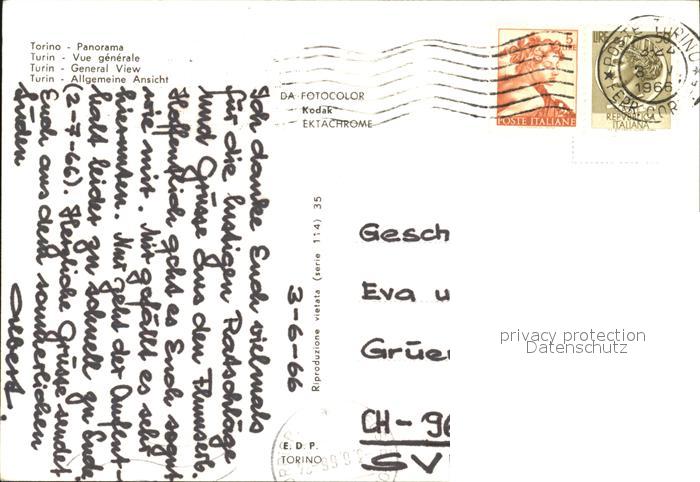 Torino - Panorama
Turin - Vue générale
Turin - General View
Turin - Allgemeine Ansicht
DA FOTOCOLOR
Kodak
EKTACHROME
5
LIRE
POSTE ITALIANE
LIRE
REPVBBLICA
ITALIANA
POSTE TORINO
1966
FERR. COR
3-6-66
Ich danke Euch vielmals
für die lustigen Ratschläge
und Grüsse aus den Flumserb.
Hoffentlich geht es Euch so gut
wie mir. Mir gefällt es sehr
hierunten. Nur geht der Aufent-
halt leider zu schnell zu Ende
(2-7-66). Herzliche Grüsse sendet
Euch aus dem sommerlichen
Süden
Albert.
Riproduzione vietata (serie 114) 35
E. D. P.
TORINO
Gesch
Eva u
Grüe
CH-96
SV
privacy protection
Datenschutz